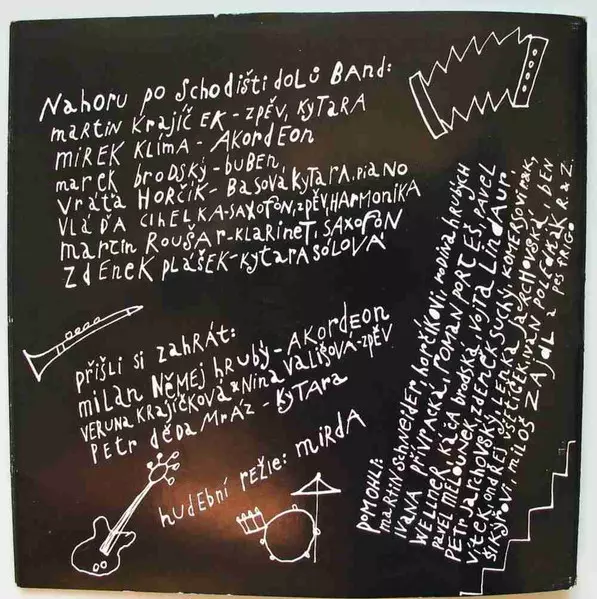 Nahoru po schodišti dolů Band:
martin Krajíček - zpěv, kytara
mirek Klíma - akordeon
marek brodský - buben
vráťa Horčík - basová kytara, piano
vláďa cihelka - saxofon, zpěv, harmonika
martin Roušar - klarinet, saxofon
zdenek plášek - kytara sólová
přišli si zahrát:
milan Němej hrubý - akordeon
veruna krajíčková & Nina vališová - zpěv
petr děda mráz - kytara
hudební režie: mirda
pomohli:
martin schneider, horčíkovi, rodina hrubých
ivana přívracká, roman porteš, pavel
wellner, káča brodská, vojta Lindaur
pavel melounek, zdeněk suchý, komersovi
petr jarchovský, Lenka jarchovská
vítek, ondřej, všetíček, ivan polforťák, ben
šikýřovi, miloš zajdl a pes trigo
R & Z